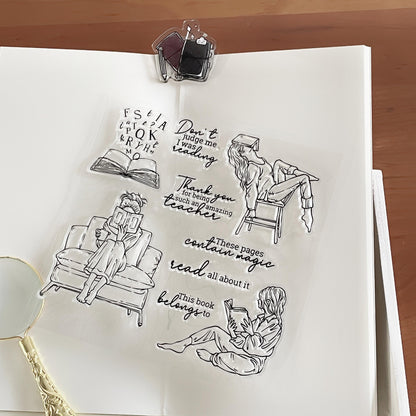 Don't
judge me
I was
reading
Thank you
for being
such an amazing
teacher
These pages
contain magic
read all about it
This book
belongs to